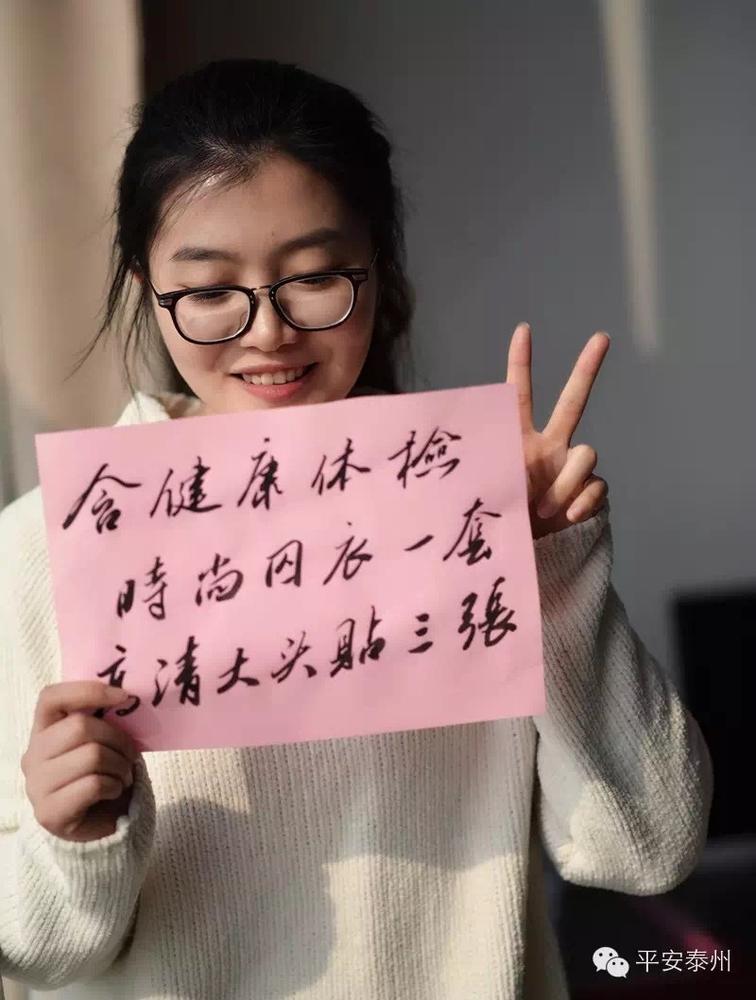 含健康体檢
時尚囚衣一套
高清大头貼三張
平安泰州